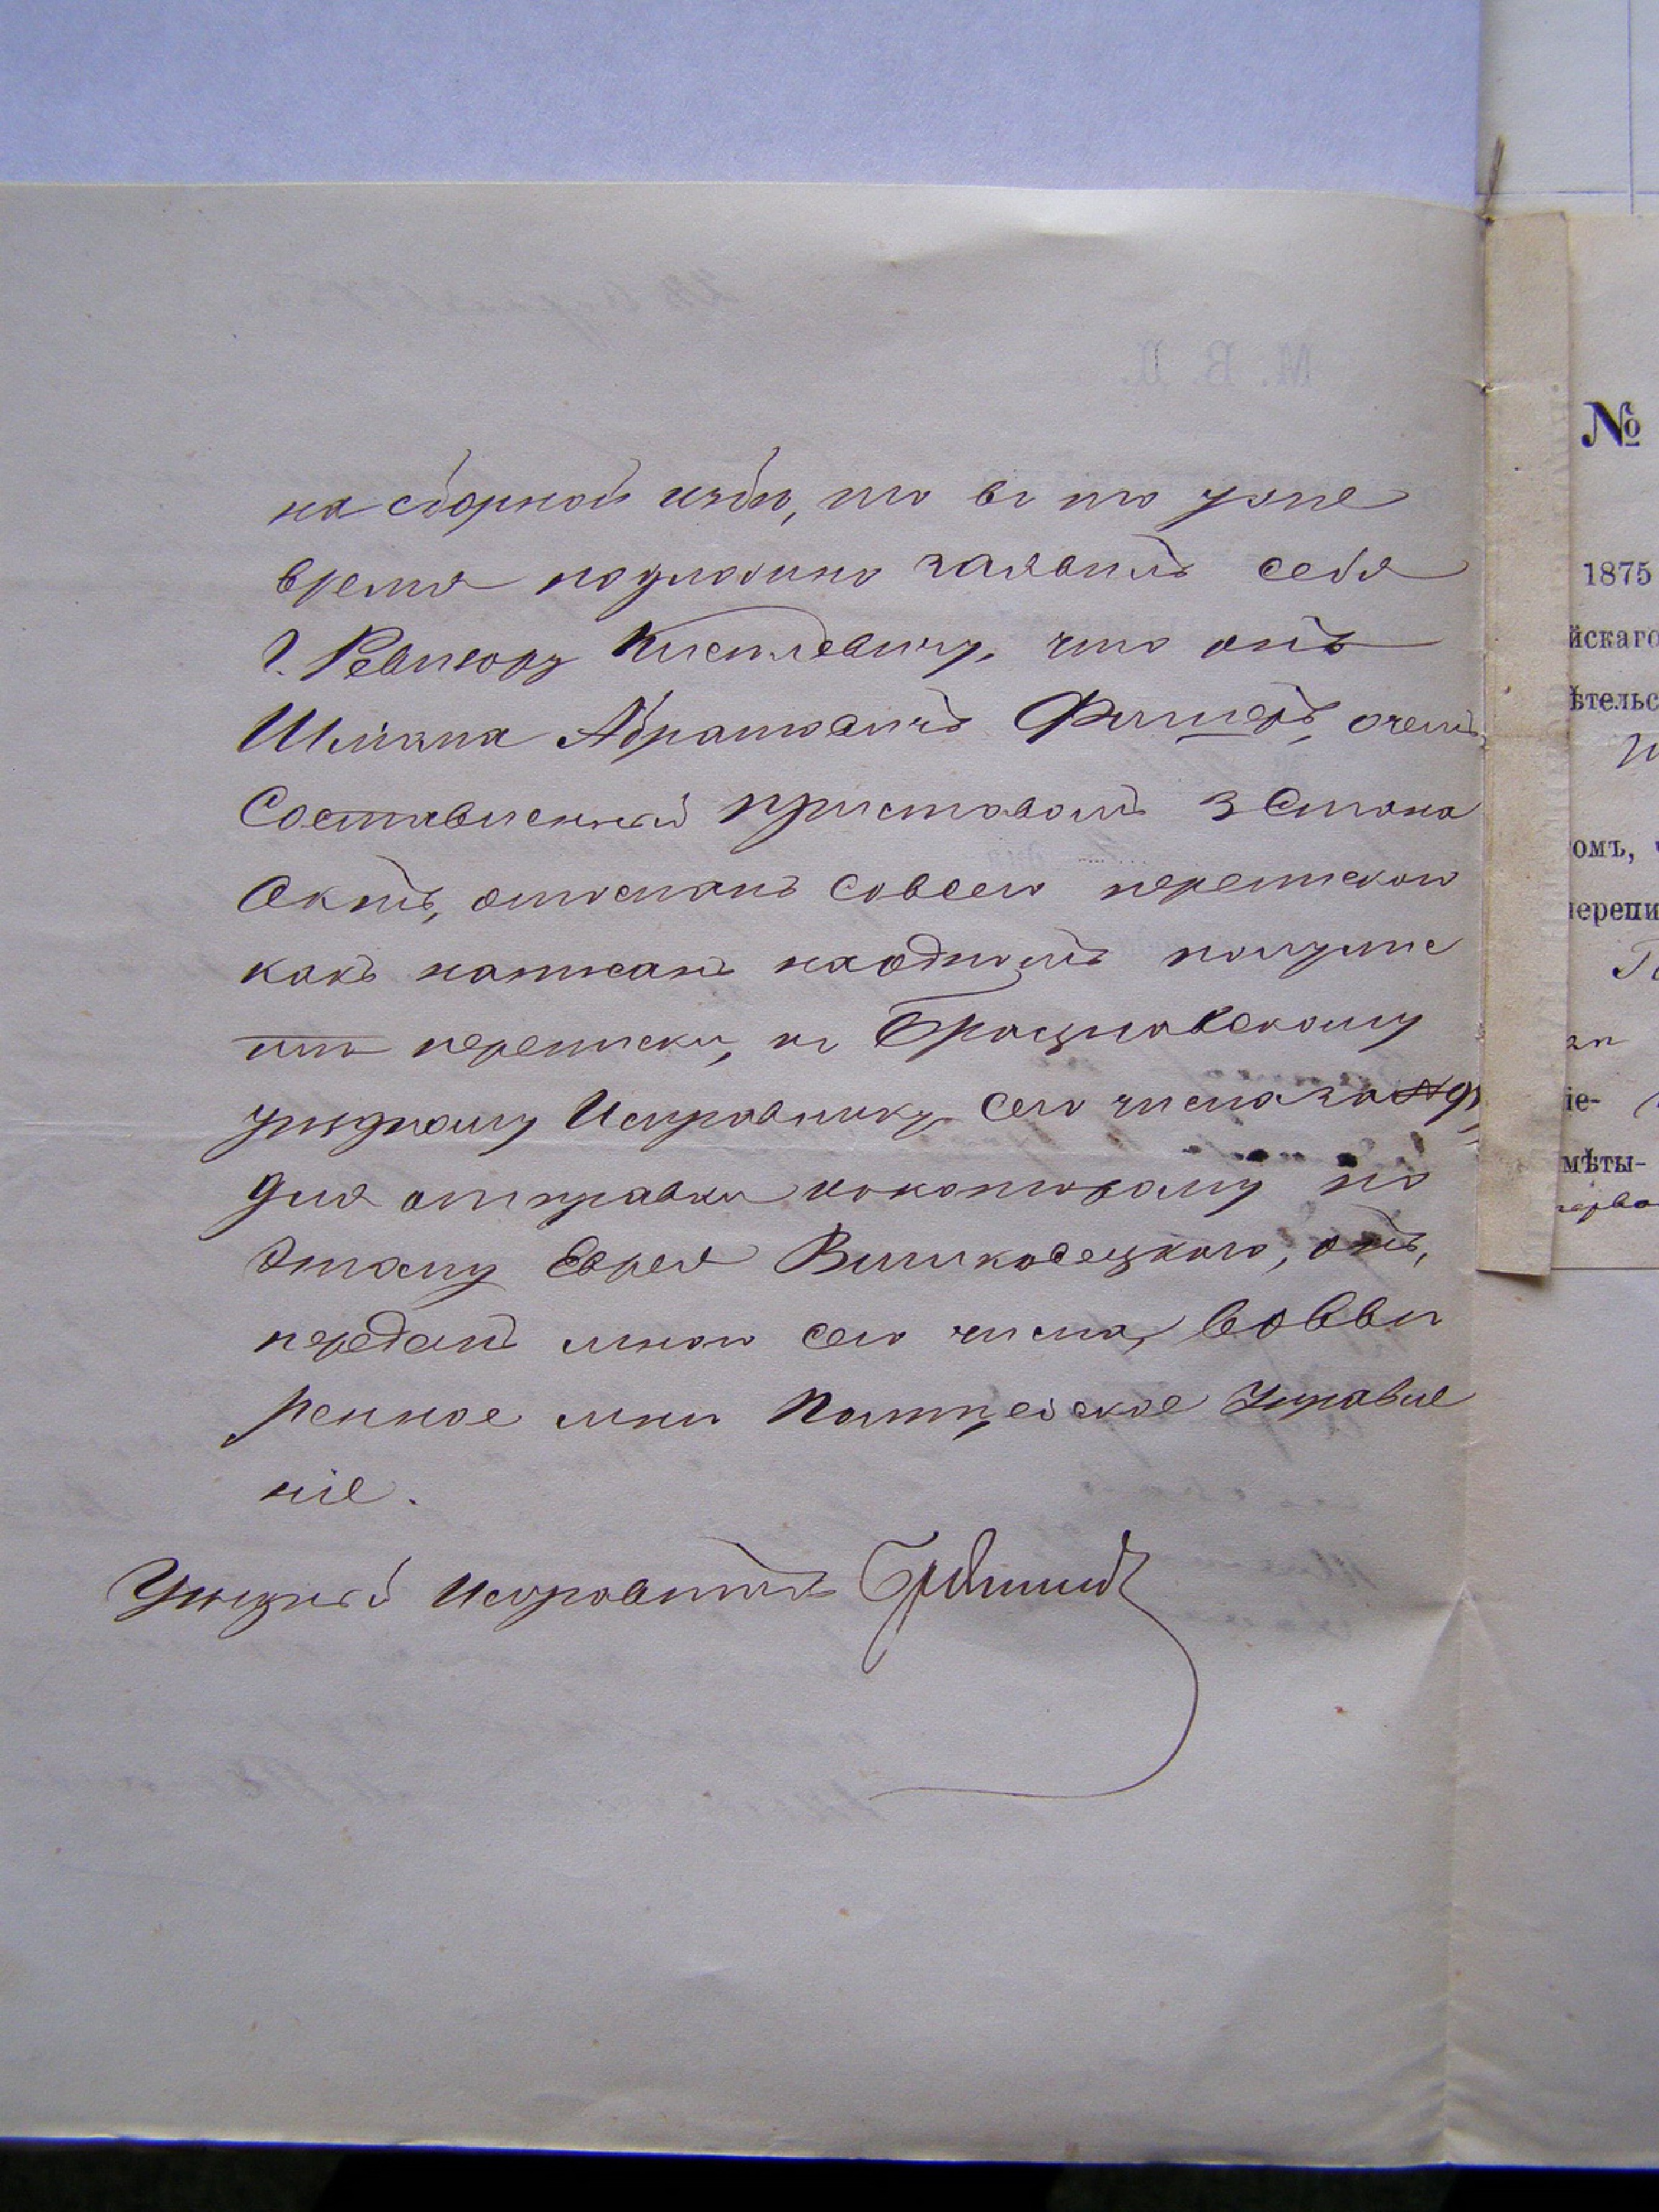 на сборной избѣ, то въ то уже
время подложно заявилъ себя
г. Ревизору Киселевичу, что онъ
Шлиома Абрамовичъ Фишеръ, о чемъ
составленный приставомъ 3 Стана
Актъ, отосланъ со всею перепискою
какъ написанъ на одномъ полулис
тѣ переписки, къ Брацлавскому
уѣздному Исправнику, сего числа за №
для отправки по которому по
этапу Еврея Вишковецкаго, онъ,
переданъ мною сего числа, во ввѣ
ренное мнѣ Полицейское Управле
ніе.
Уѣздный Исправникъ
М. В. Д.
№
1875
йскаго
ѣтельс
омъ, ч
перепи
іе-
мѣты-